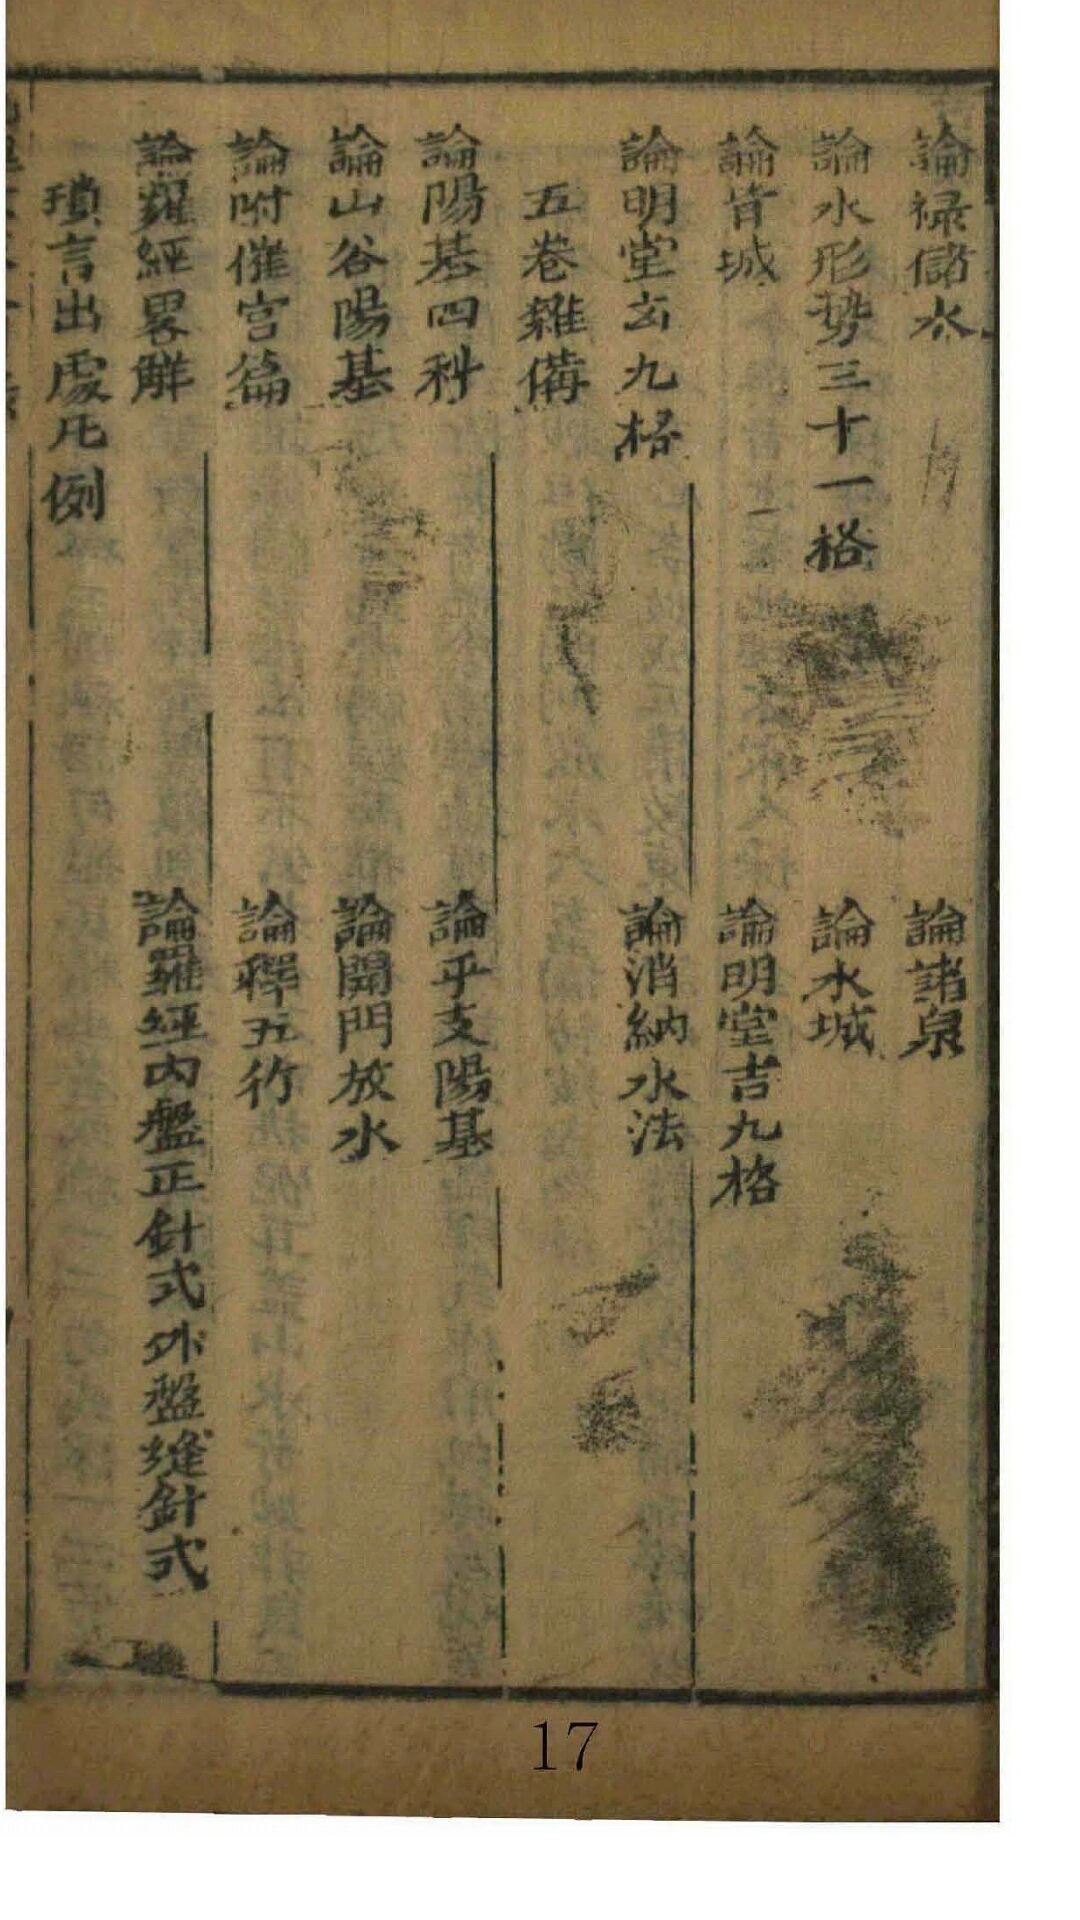 論祿儲水 論諸泉
論水形势三十一格 論水城
論背城 論明堂吉九格
論明堂玄九格 論消納水法
五巻雜俻
論陽基四科 論乎支陽基
論山谷陽基 論開門放水
論附催官篇 論釋五行
論羅經畧解 論羅經内盤正針式外盤縫針式
瑣言出處凡例
17